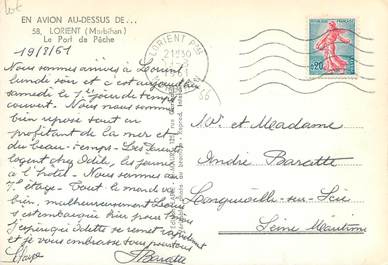 EN AVION AU-DESSUS DE...
58, LORIENT (Morbihan)
Le Port de Pêche
19/8/61
Nous sommes arrivés à Lorient
lundi soir et c'est aujourd'hui
samedi le 1er jour de temps
couvert. Nous nous sommes
bien reposé tout en
profitant de la mer et
du beau temps. Les
logent chez Odile, les jeunes
à l'hôtel. Nous sommes au
7e étage. Tout le monde va
bien, malheureusement
s'est embarqué hier pour
J'espère qu'Odette se remet rapidement
et je vous embrasse tous
Baratte
LORIENT
REPUBLIQUE FRANÇAISE
0,20
POSTES
Mr et Madame
André Baratte
Longueville-sur-Scie
Seine Maritime